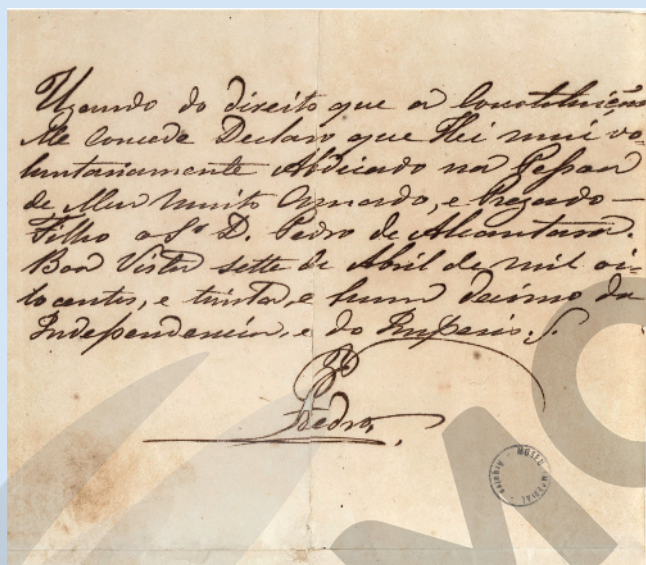 Uzando do direito que a Constituição
Me Concede Declaro que Hei mui vo-
luntariamente Abdicado na Pessoa
de Meu muito Amado, e Prezado
Filho o Sr. D. Pedro de Alcantara.
Boa Vista sette de Abril de mil oi-
tocentos, e trinta, e hum decimo da
Independencia, e do Imperio.
Pedro
MUSEU IMPERIAL - ARQUIVO
MO